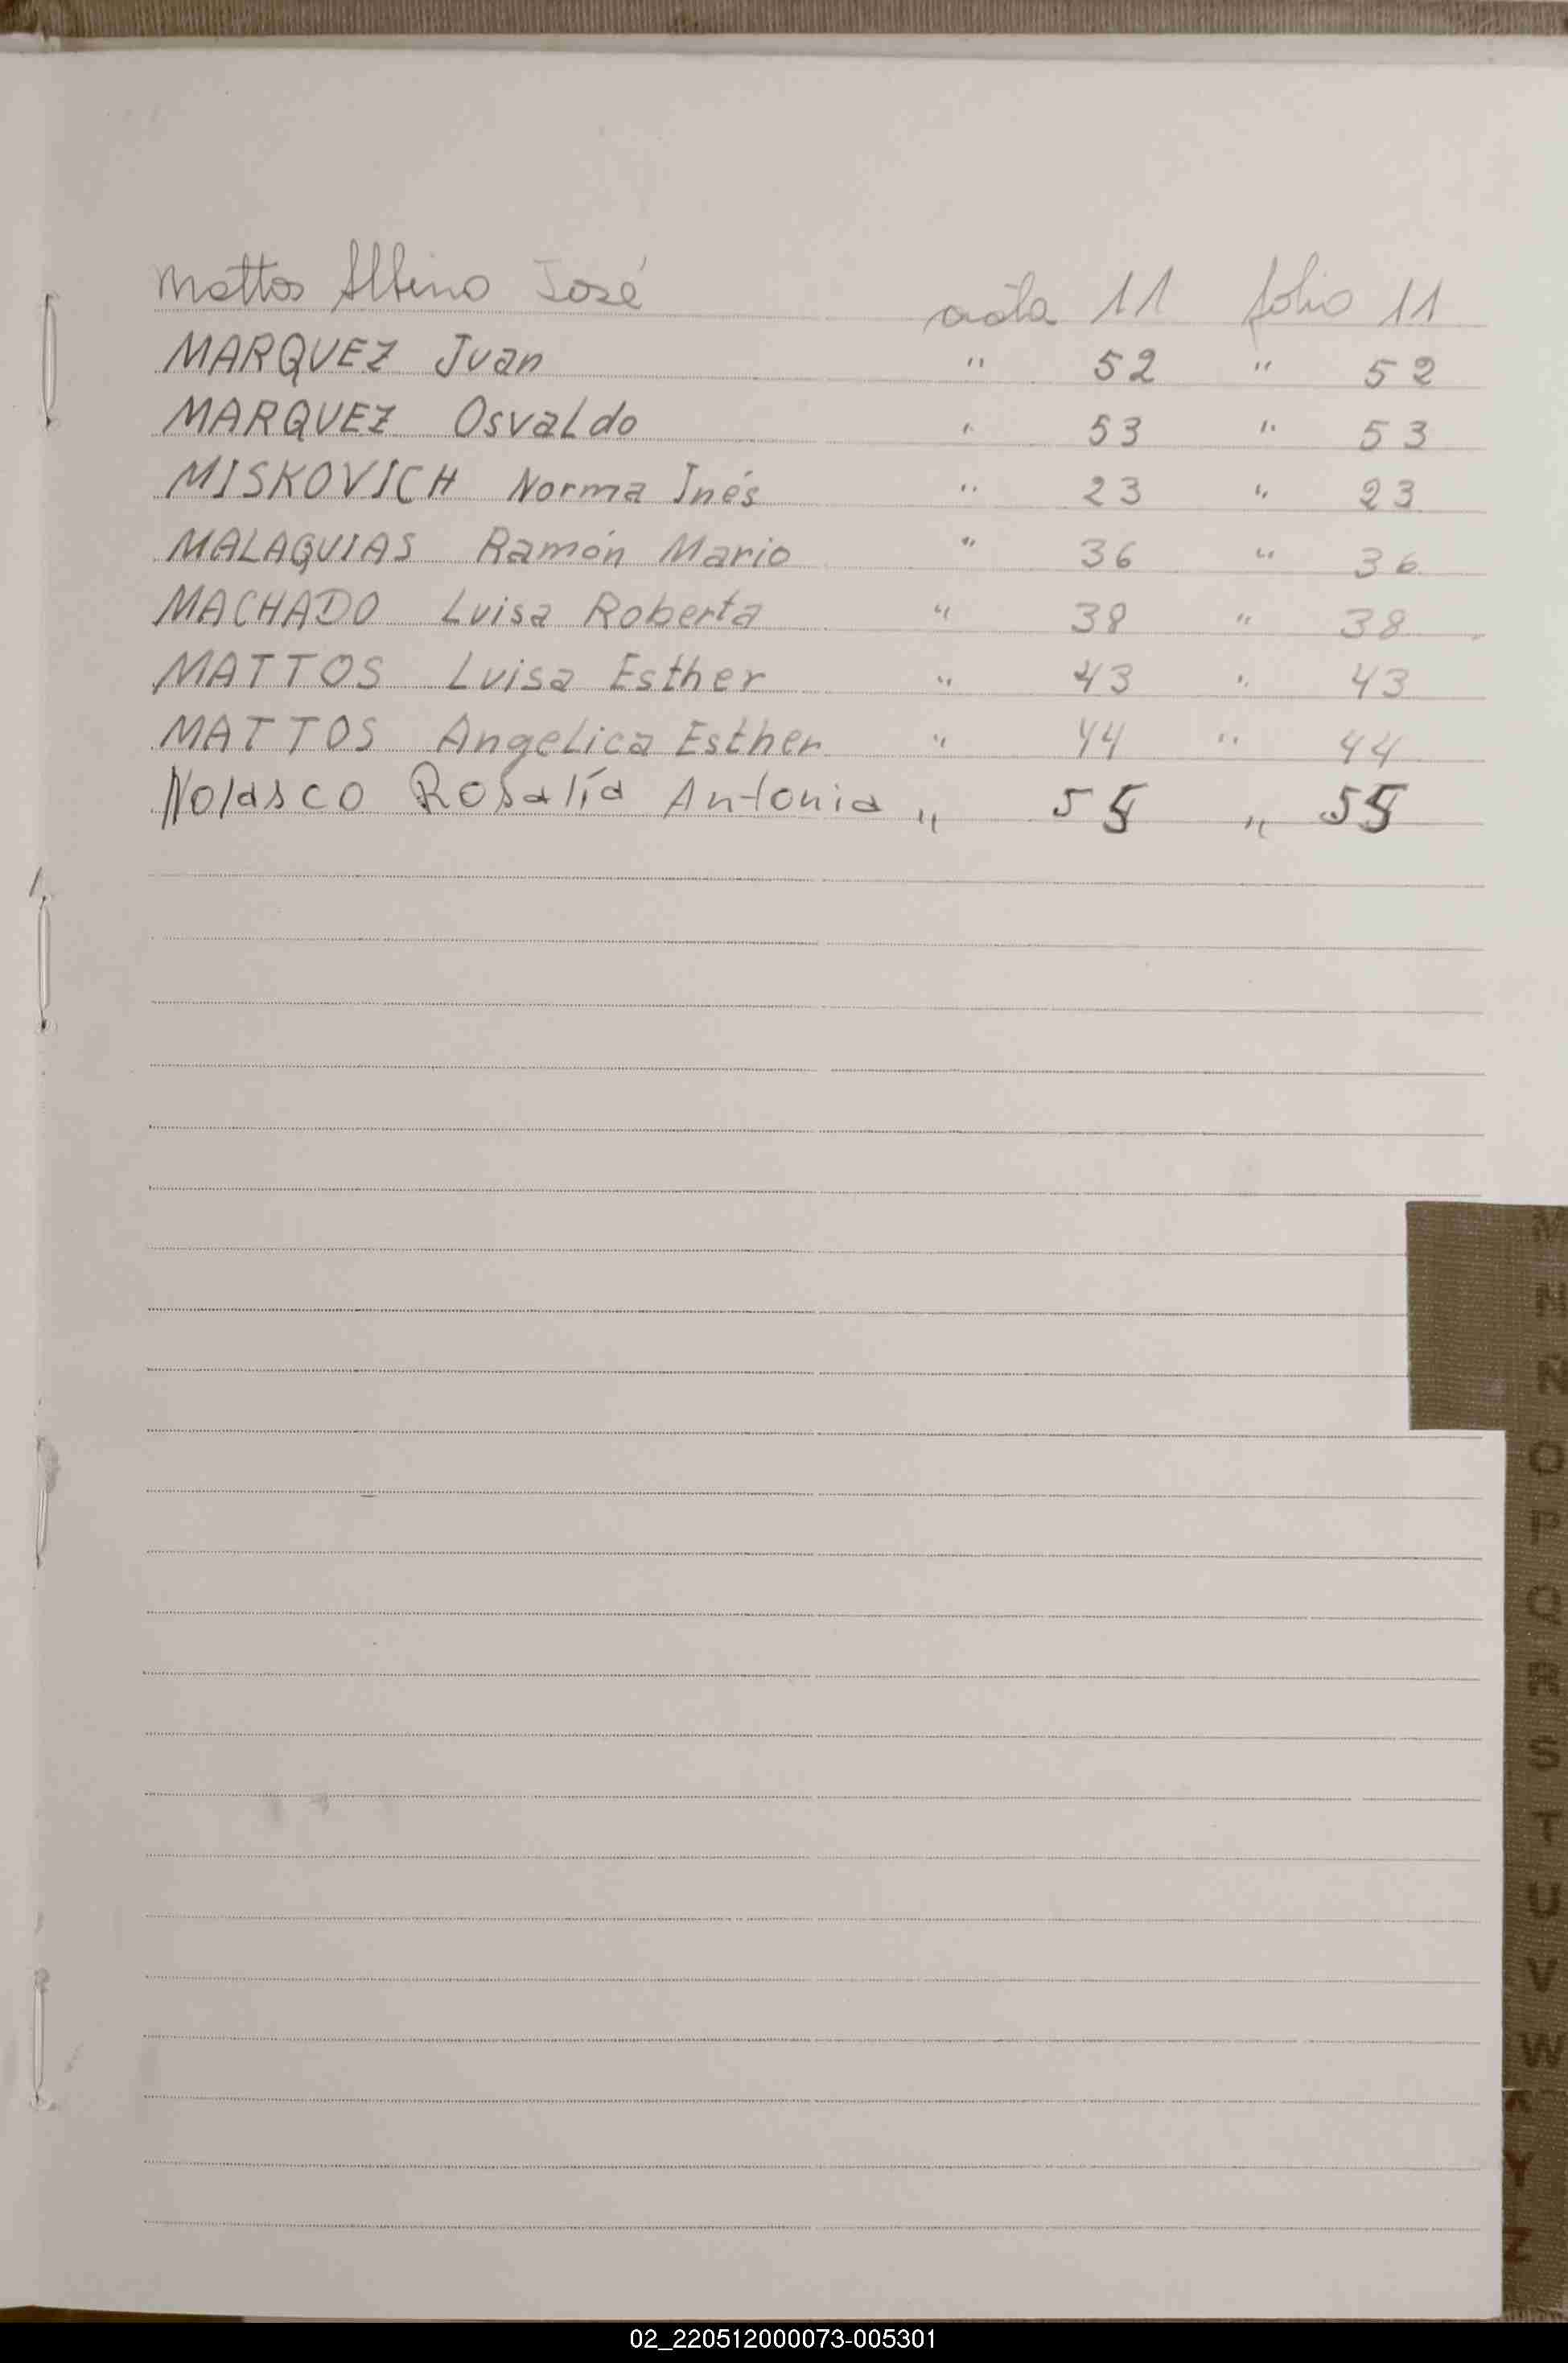 Mattos Albino José acta 11 folio 11
MARQUEZ Juan " 52 " 52
MARQUEZ Osvaldo " 53 " 53
MISKOVICH Norma Inés " 23 " 23
MALAQUIAS Ramón Mario " 36 " 36
MACHADO Luisa Roberta " 38 " 38
MATTOS Luisa Esther " 43 " 43
MATTOS Angelica Esther " 44 " 44
Nolasco Rosalía Antonia " 55 " 55
M
N
Ñ
O
P
Q
R
S
T
U
V
W
X
Y
Z
02_220512000073-005301